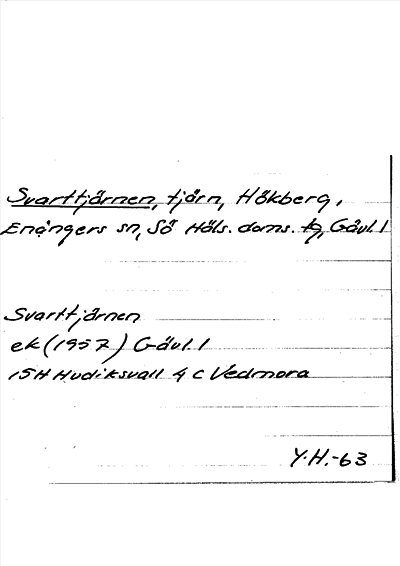 Svarttjärnen, tjärn, Hökberg,
Enångers sn, Sö Häls. doms. tg, Gävl. l
Svarttjärnen
ek (1957) Gävl. l
15H Hudiksvall 4 c Vedmora
Y.H.-63